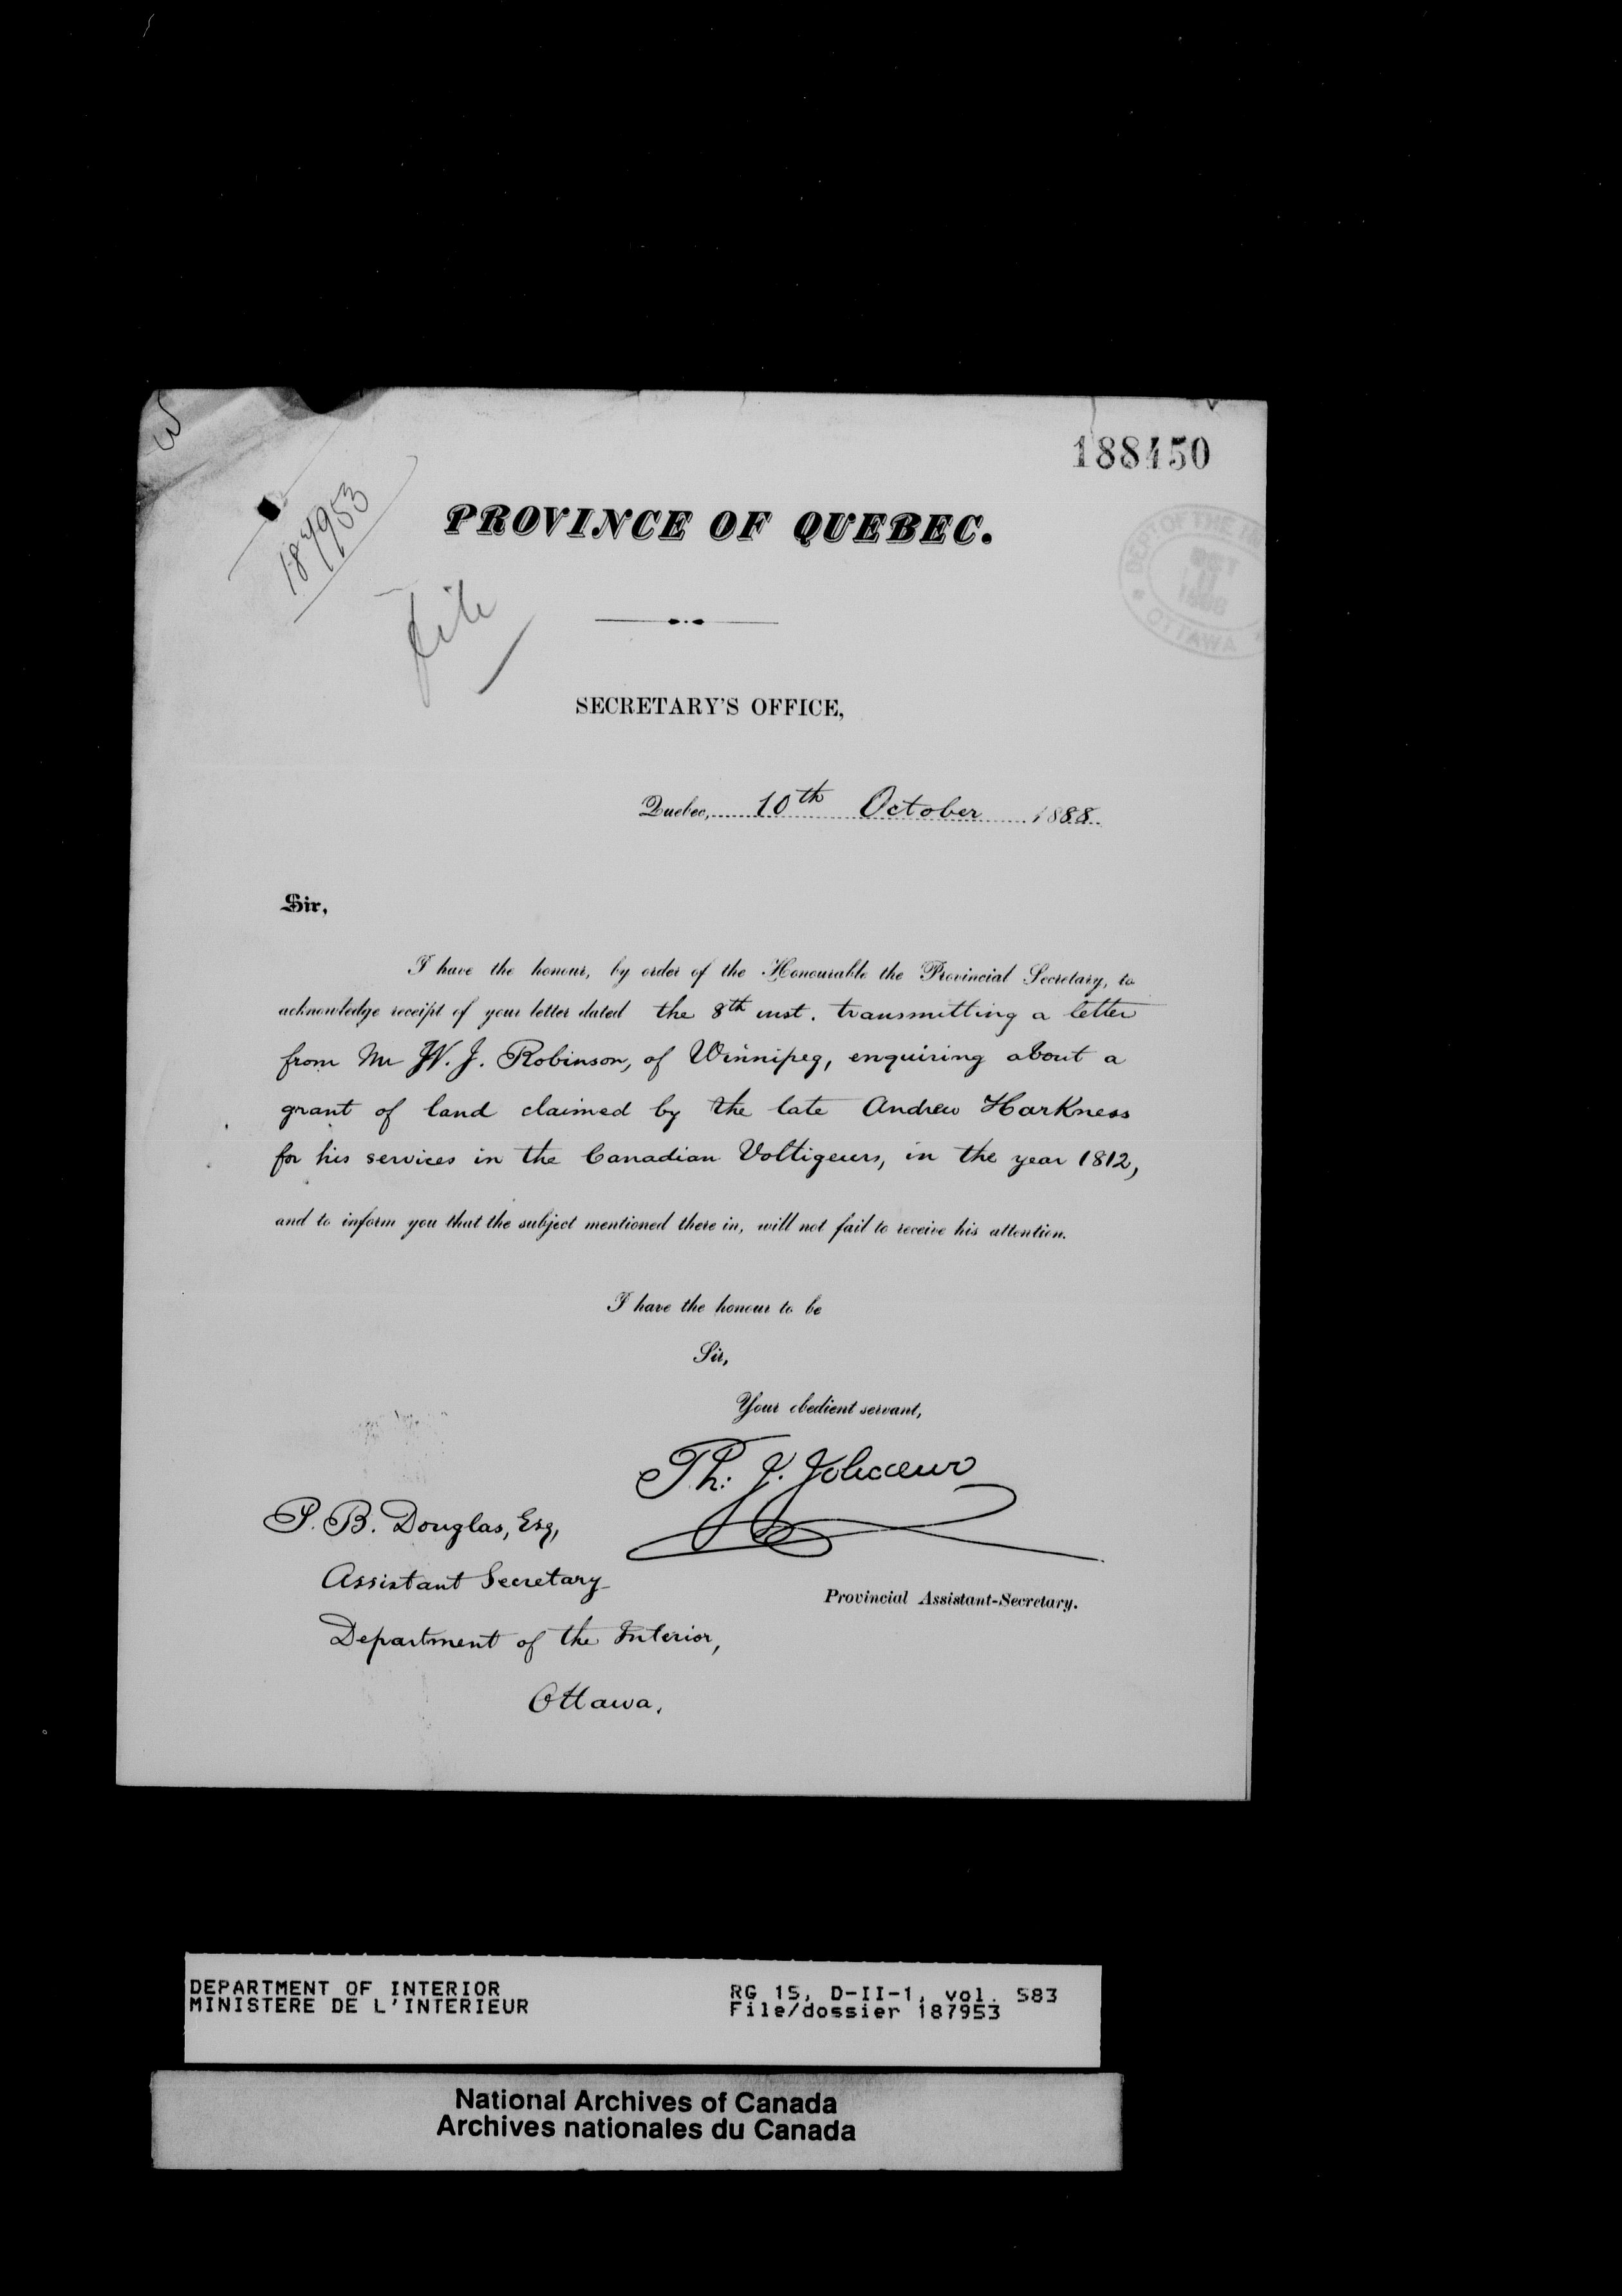 188450
187953
PROVINCE OF QUEBEC.
file
DEPT OF THE IN
OCT
11
1888
OTTAWA
SECRETARY'S OFFICE,
Quebec, 10th October 1888.
Sir,
I have the honour, by order of the Honourable the Provincial Secretary, to
acknowledge receipt of your letter dated the 8th inst. transmitting a letter
from Mr W. J. Robinson, of Winnipeg, enquiring about a
grant of land claimed by the late Andrew Harkness
for his services in the Canadian Voltigeurs, in the year 1812,
and to inform you that the subject mentioned there in, will not fail to receive his attention.
I have the honour to be
Sir,
Your obedient servant,
Th: J. Jolicoeur
P. B. Douglas, Esq,
Assistant Secretary
Provincial Assistant-Secretary.
Department of the Interior,
Ottawa.
DEPARTMENT OF INTERIOR
MINISTERE DE L'INTERIEUR
RG 15, D-II-1, vol. 583
File/dossier 187953
National Archives of Canada
Archives nationales du Canada